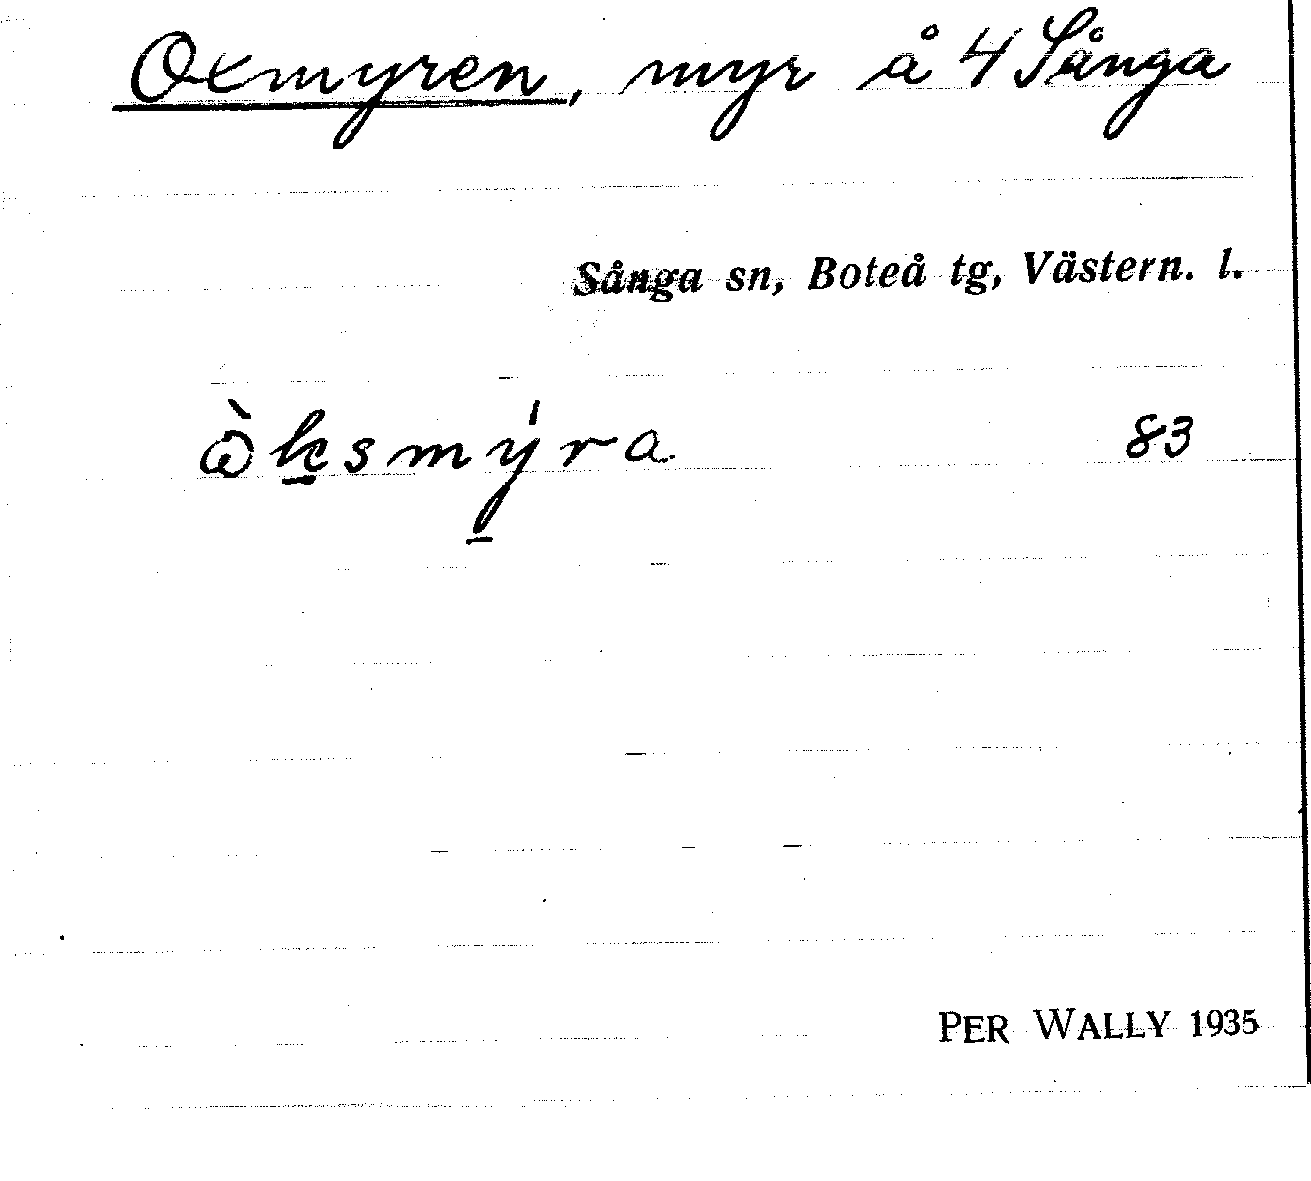 Oxmyren, myr å 4 Sånga
Sånga sn, Boteå tg, Västern. l.
ὼk̲smý̲ra 83
PER WALLY 1935